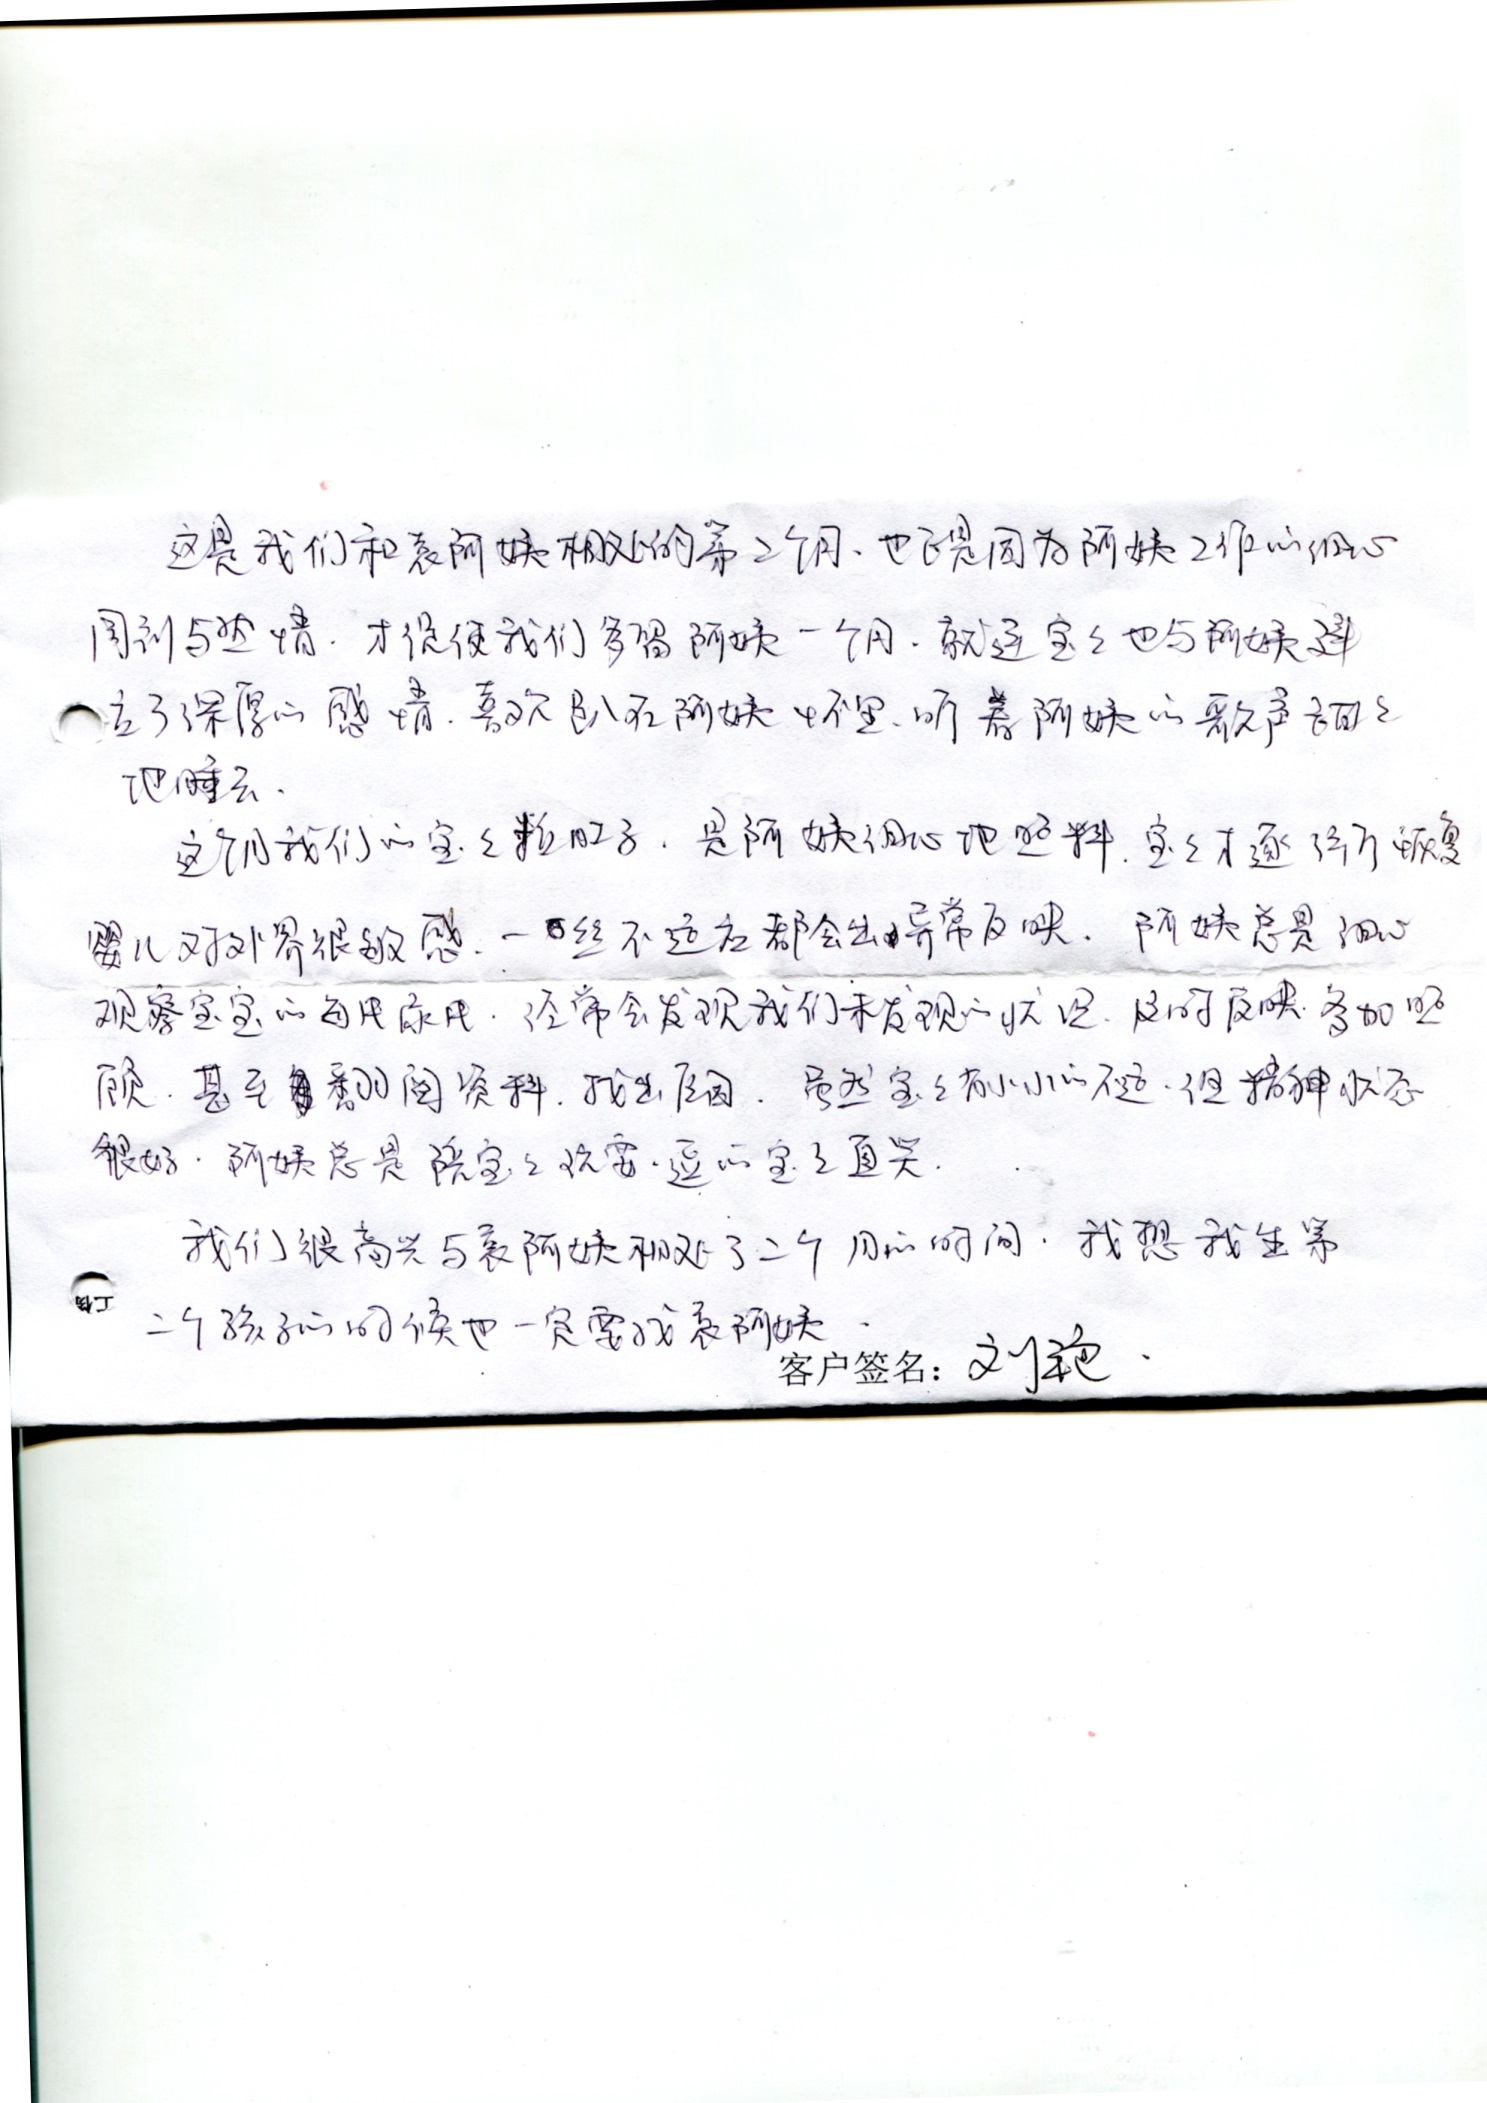 这是我们和袁阿姨相处的第2个月、也正是因为阿姨工作的细心
周到与热情.才促使我们多留阿姨一个月.就连宝宝也与阿姨建
立了深厚的感情.喜欢趴在阿姨怀里、听着阿姨的歌声甜甜
地睡去.
这个月我们的宝宝粒肚子.是阿姨细心地照料.宝宝才逐渐恢复
婴儿对外界很敏感.一丝不适应都会出现异常反映.阿姨总是细心
观察宝宝的每日尿片.经常会发现我们未发现的状况.及时反映.多加照
顾.甚至翻阅资料.找出原因.虽然宝宝有小小的不适.但精神状态
很好.阿姨总是陪宝宝玩耍.逗的宝宝直笑.
我们很高兴与袁阿姨相处了二个月的时间.我想我生第
二个孩子的时候也一定要找袁阿姨.
客户签名：刘艳.